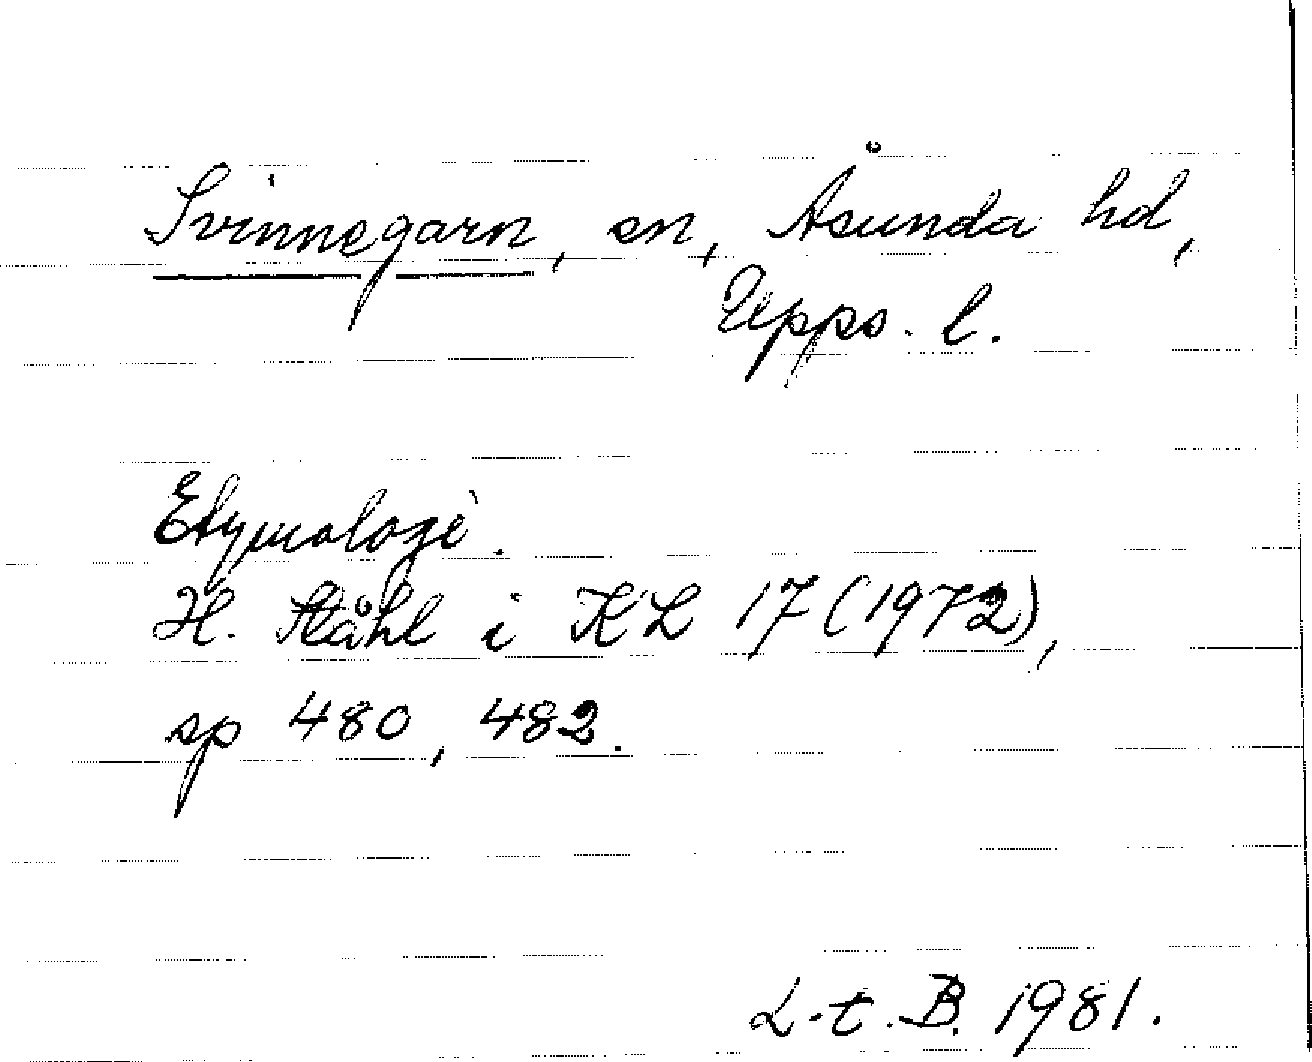 Svinnegarn, sn, Åsunda hd,
Upps. l.
Etymologi.
H. Ståhl i KL 17 (1972),
sp 480, 482.
L-t. B. 1981.